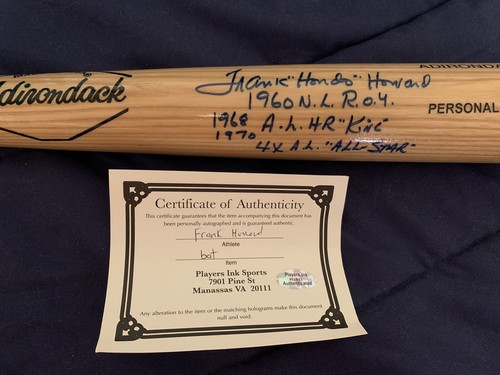 Adirondack
ADIRONDA
Frank "Hondo" Howard
1960 N.L. R.O.Y.
1968 A.L. HR "King"
1970
4X A.L. "ALL STAR"
PERSONAL
Certificate of Authenticity
This certificate guarantees that the item accompanying this document has
been personally autographed and is guaranteed authentic.
Frank Howard
Athlete
bat
Item
Players Ink Sports
7901 Pine St
Manassas VA 20111
Players Ink
Authenticated
Any alteration to the item or the matching holograms make this document
null and void.